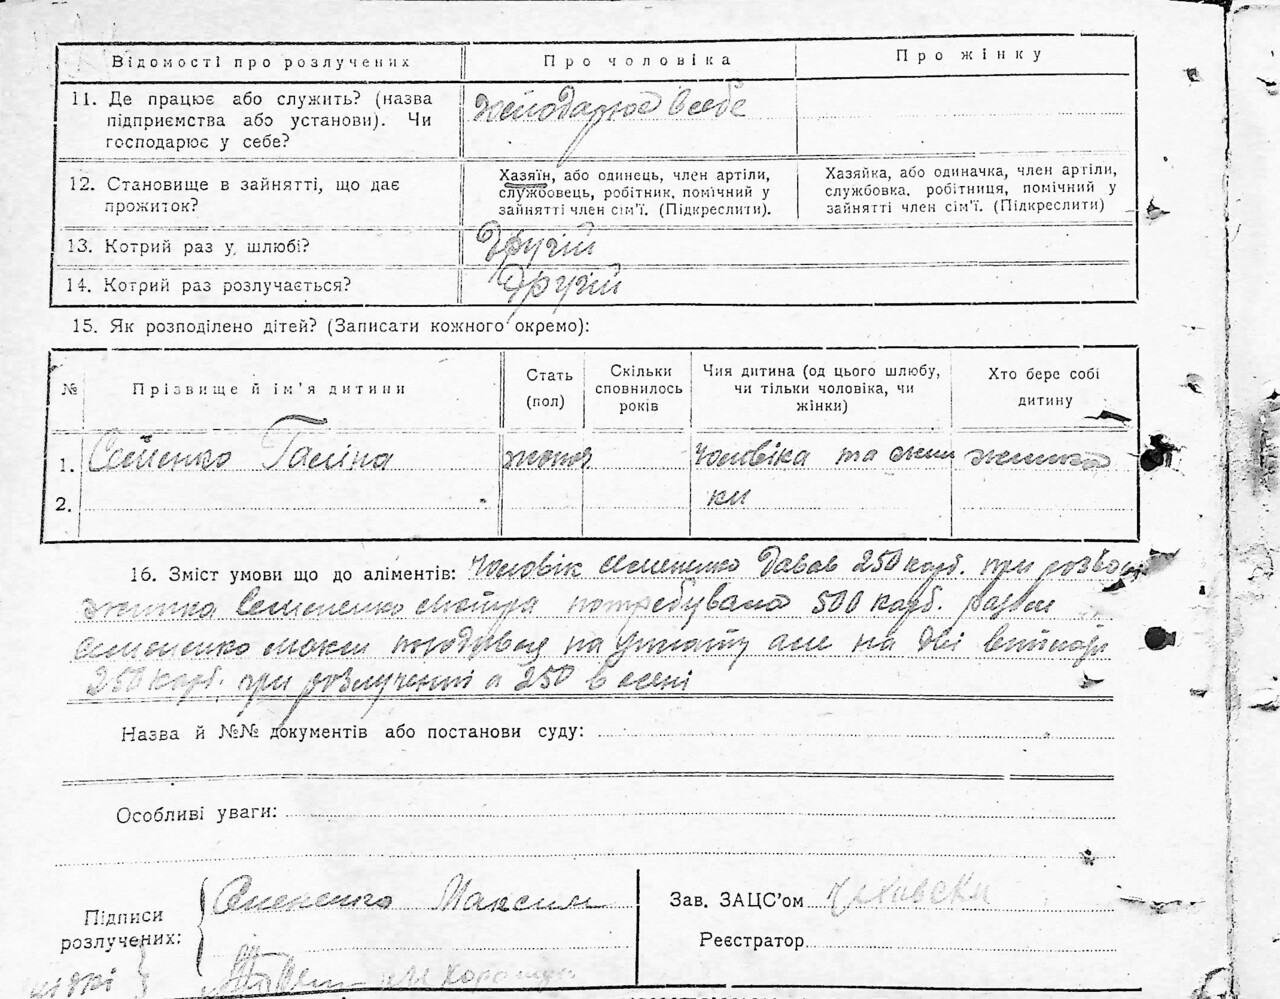 Відомості про розлучених Про чоловіка Про жінку
11. Де працює або служить? (назва
підприємства або установи). Чи
господарює у себе?
господарює в себе
12. Становище в зайнятті, що дає
прожиток?
Хазяїн, або одинець, член артіли,
службовець, робітник, помічний у
зайнятті член сім'ї. (Підкреслити).
Хазяйка, або одиначка, член артіли,
службовка, робітниця, помічний у
зайнятті член сім'ї. (Підкреслити)
13. Котрий раз у шлюбі? Другій
14. Котрий раз розлучається? Другій
15. Як розподілено дітей? (Записати кожного окремо):
№ Прізвище й ім'я дитини
Стать
(пол)
Скільки
сповнилось
років
Чия дитина (од цього шлюбу,
чи тільки чоловіка, чи
жінки)
Хто бере собі
дитину
1. Семенко Галіна чоловіка та жин
2. ки
16. Зміст умови що до аліментів: Чоловік Семененко давав 250 карб. при
жинка Семененко потребувала 500 карб.
Семененко на уплату але на дві
250 карб. при розлученні а 250 в осені
Назва й №№ документів або постанови суду:
Особливі уваги:
Підписи
розлучених:
Семененко Максим
Зав. ЗАЦС'ом
Реєстратор